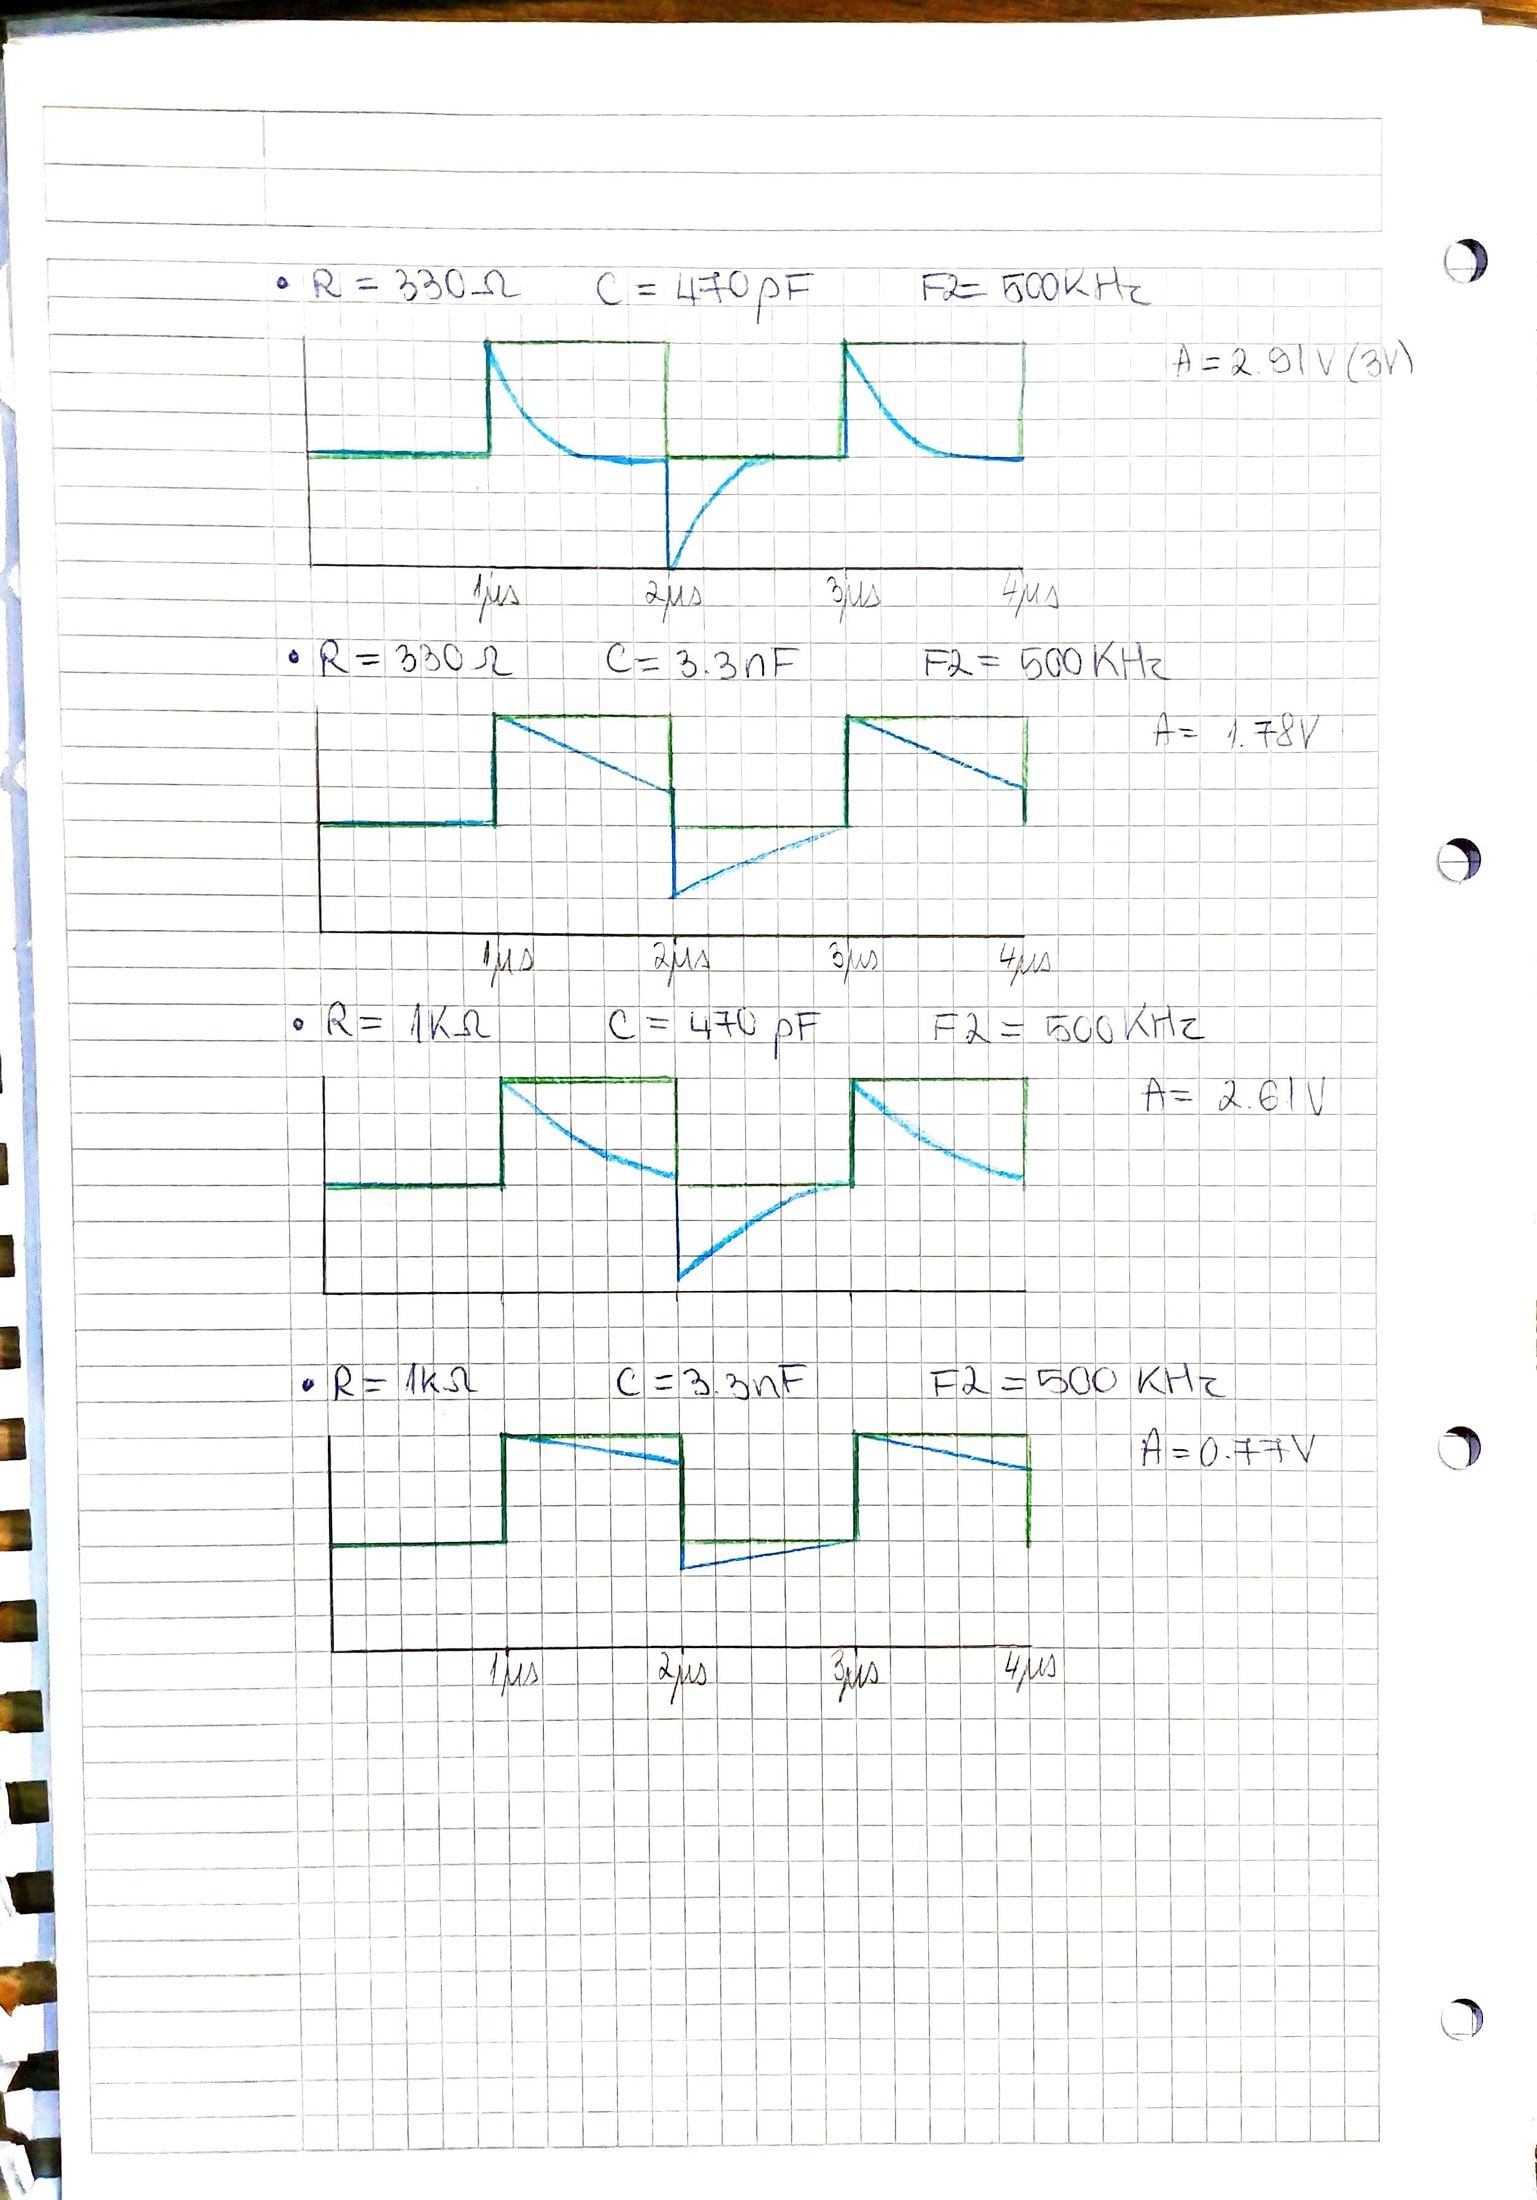 • R = 330Ω C = 470pF F2= 500KHz
A = 2.91V (3V)
1μs 2μs 3μs 4μs
• R = 330Ω C = 3.3nF F2 = 500KHz
A = 1.78V
1μs 2μs 3μs 4μs
• R = 1KΩ C = 470pF F2 = 500KHz
A = 2.61V
• R = 1kΩ C = 3.3nF F2 = 500 KHz
A = 0.77V
1μs 2μs 3μs 4μs